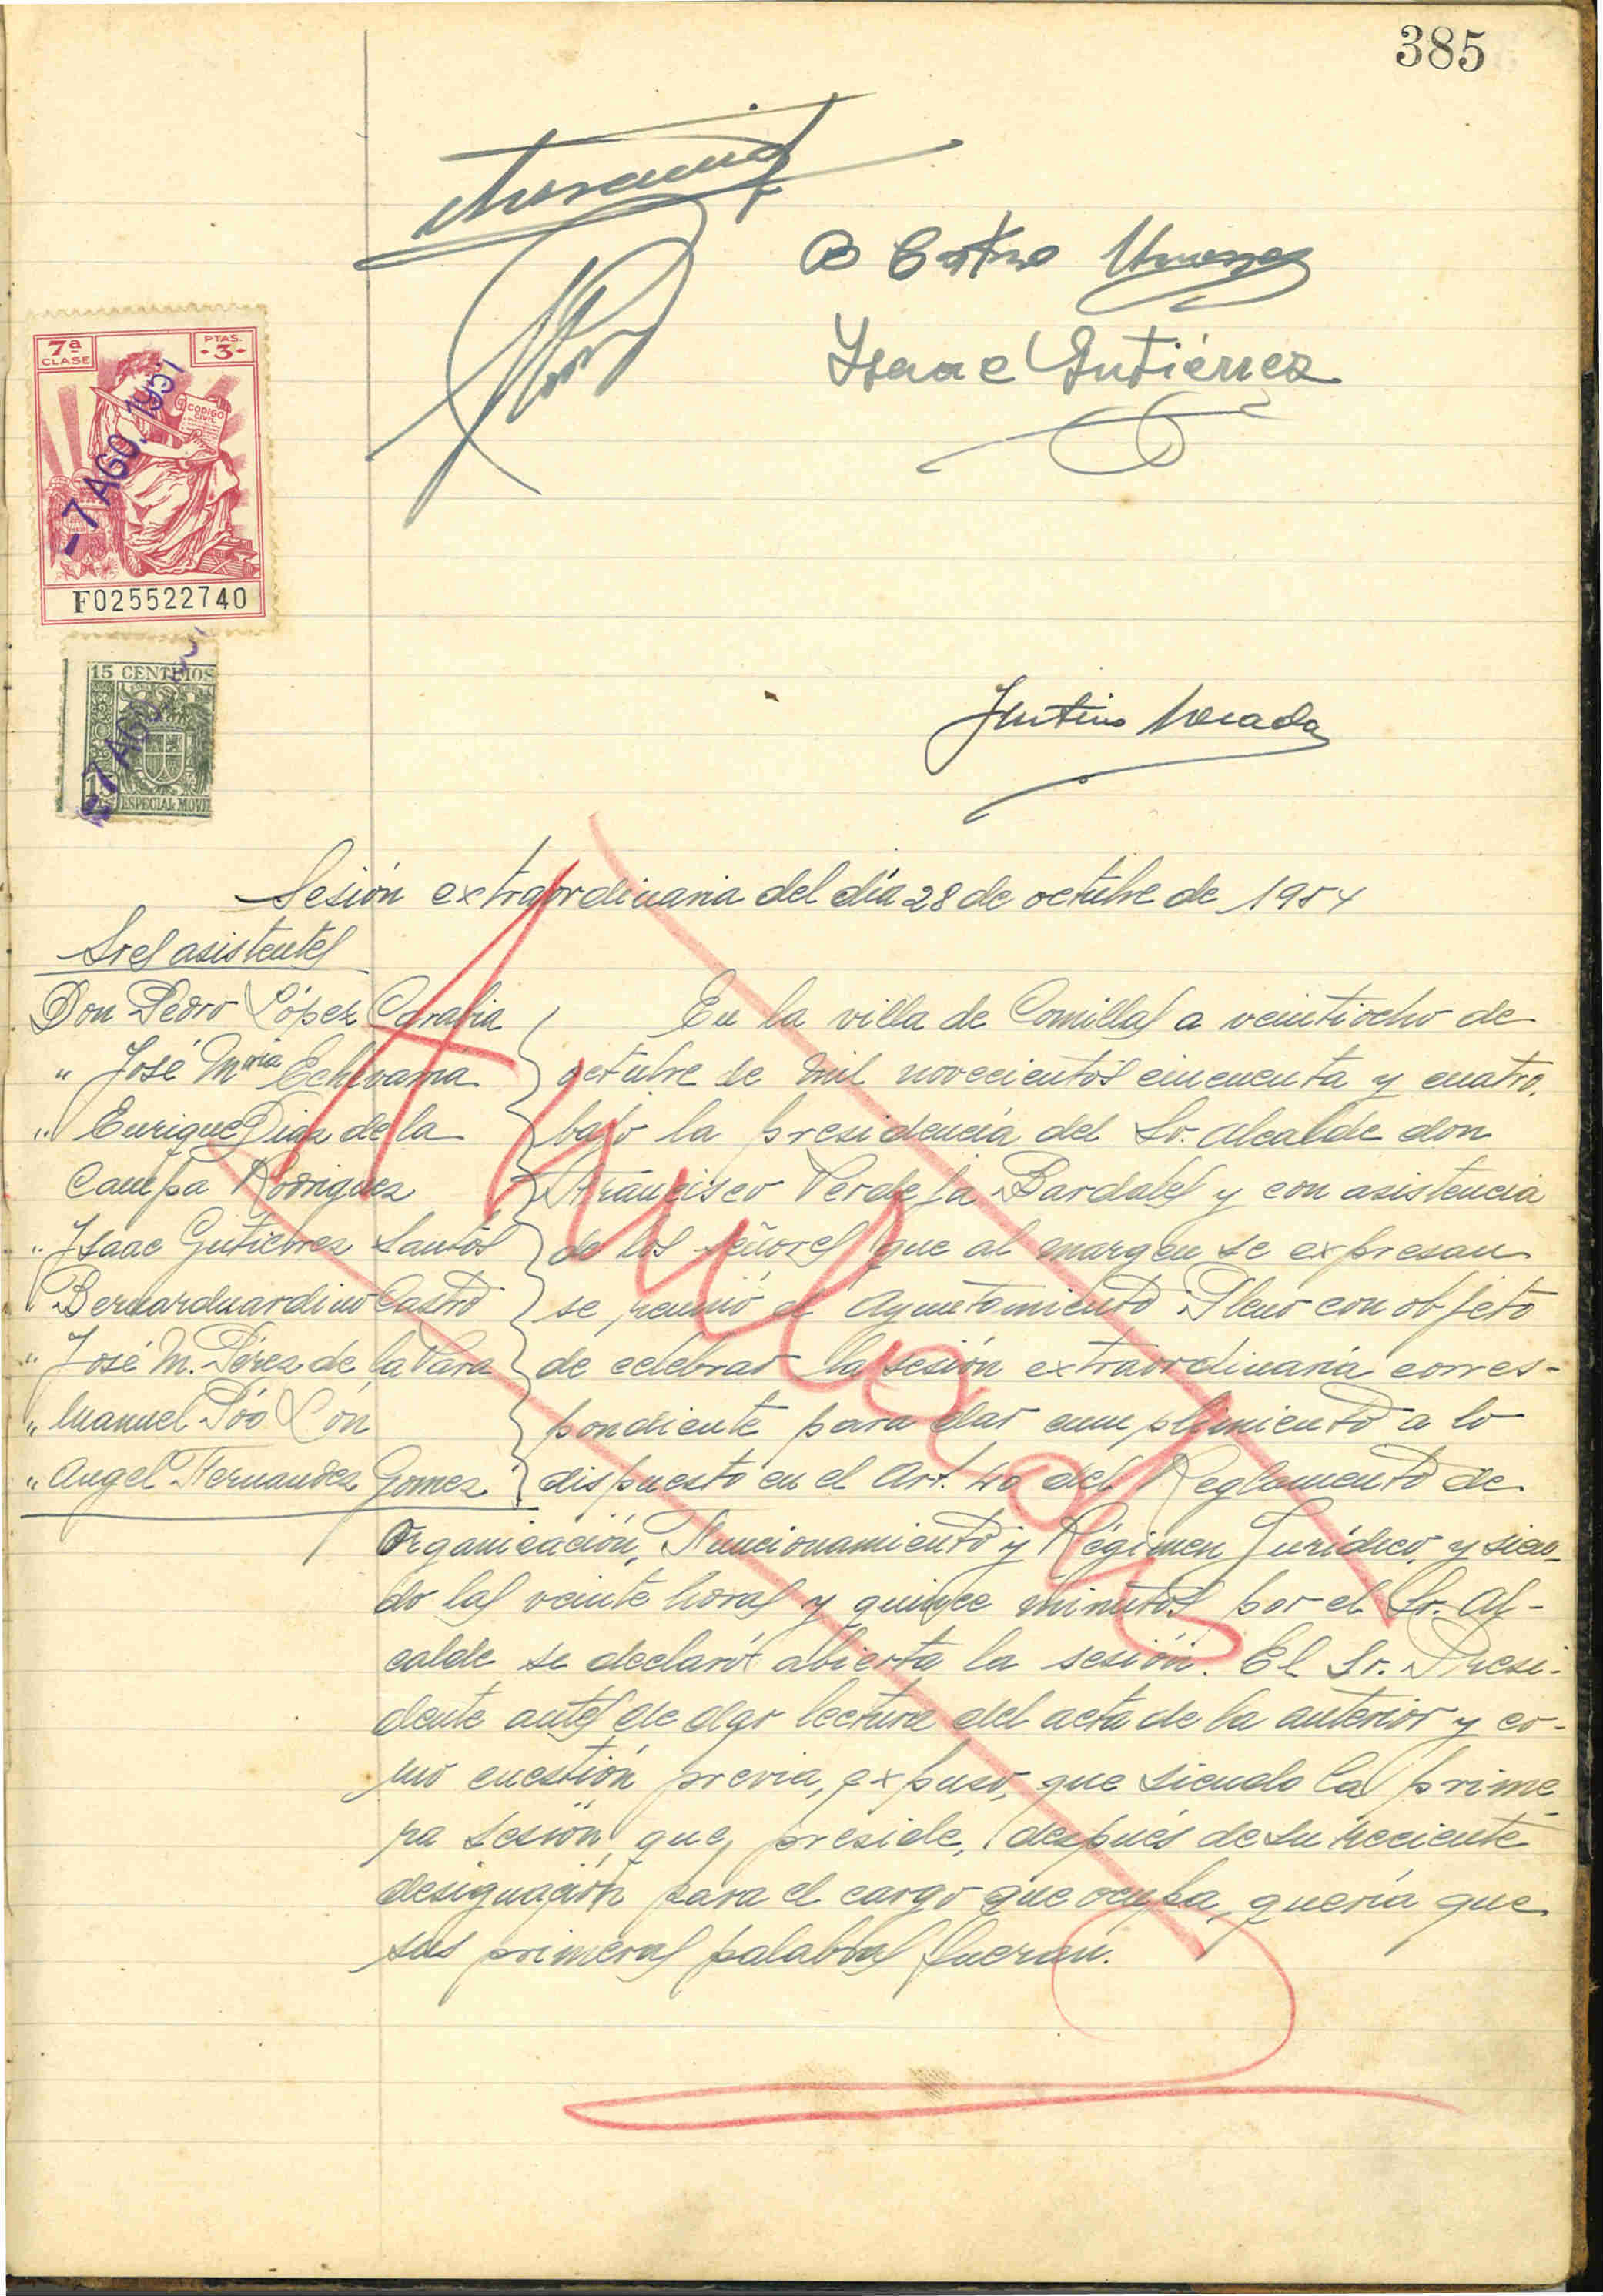 385
B Castro
Isaac Gutiérrez
7ª
CLASE
PTAS.
-3-
CODIGO
CIVIL
-7 AGO. 1951
F025522740
15 CENTIMOS
15
ESPECIAL MOVIL
Sesión extraordinaria del día 28 de octubre de 1954
Sres asistentes
Don Pedro López Carabia
" José Mª Echevarria
" Enrique Diaz de la
Campa Rodriguez
" Isaac Gutierrez Santos
" Bernarduardino Castro
" José M. Pérez de la Vara
" Manuel Póo Cón
" Angel Fernandez Gomez
En la villa de Comillas a veintiocho de
octubre de mil novecientos cincuenta y cuatro,
bajo la presidencia del Sr. Alcalde don
Francisco Verdeja Bardales y con asistencia
de los señores que al margen se expresan
se reunió el Ayuntamiento Pleno con objeto
de celebrar la sesión extraordinaria corres-
pondiente para dar cumplimiento a lo
dispuesto en el Art. 40 del Reglamento de
Organización, Funcionamiento y Régimen Jurídico, y sien-
do las veinte horas y quince minutos por el Sr. Al-
calde se declaró abierta la sesión. El Sr. Presi-
dente antes de dar lectura del acta de la anterior y co-
mo cuestión previa, expuso, que siendo la prime
ra sesión, que, preside, después de su reciente
designación para el cargo que ocupa, quería que
sus primeras palabras fueran.
Anulada